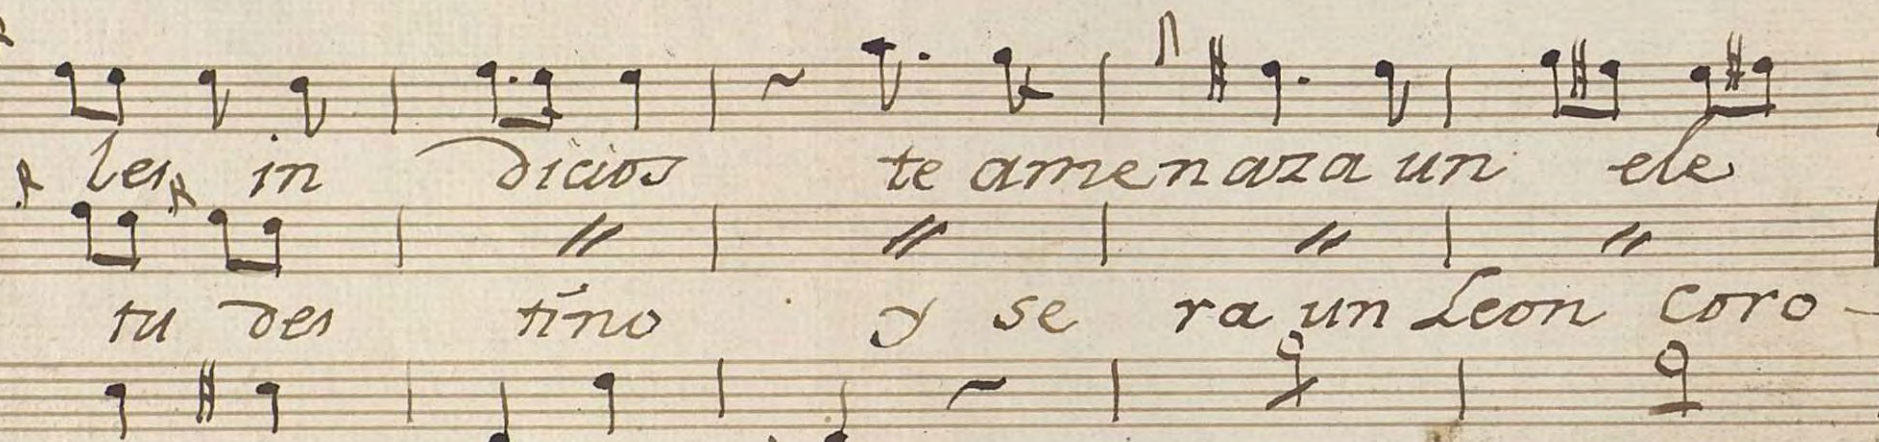 les in dicios te amenaza un ele
tu des tino y se ra un Leon coro-